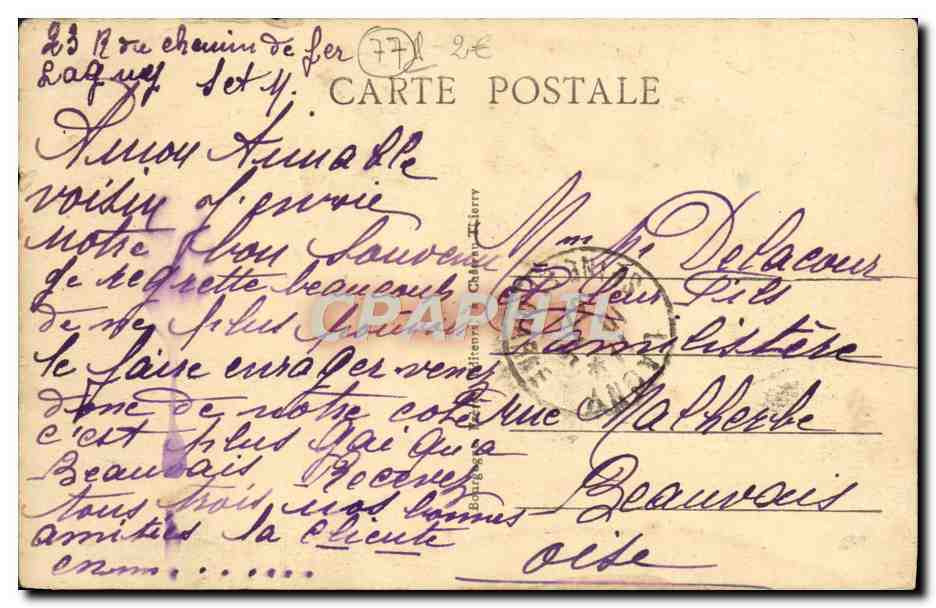 23 R du chemin de fer
Lagny Set M.
77 2€
CARTE POSTALE
A mon Aimable
voisin j'envoie
notre bon Souvenir
Je regrette beaucoup
de ne plus pouvoir
le faire enrager venez
donc de notre coté
c'est plus gai qu'a
Beauvais Recevez
tous trois nos bonnes
amitiés la cliente
en..........
Bourgogne Editeurs Château Thierry
Mme Delacour
et leur Fils
Familistère
rue Malherbe
Beauvais
Oise
LAGNY
SEINE ET MARNE
CPAPHIL